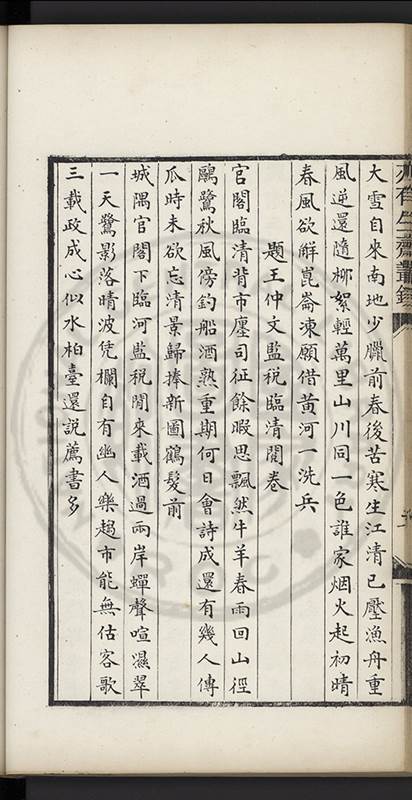 大雪自來南地少臘前春後苦寒生江清已壓漁舟重
風逆還隨柳絮輕萬里山川同一色誰家烟火起初晴
春風欲解崑崙凍願借黃河一洗兵
題王仲文監稅臨清閣卷
官閣臨清背市廛司征餘暇思飄然牛羊春雨回山徑
鷗鷺秋風傍釣船酒熟重期何日會詩成還有幾人傳
瓜時未欲忘清景歸捧新圖鶴髮前
城隅官閣下臨河監稅閒來載酒過兩岸蟬聲喧濕翠
一天鷺影落晴波凭欄自有幽人樂趨市能無估客歌
三載政成心似水柏臺還說薦書多